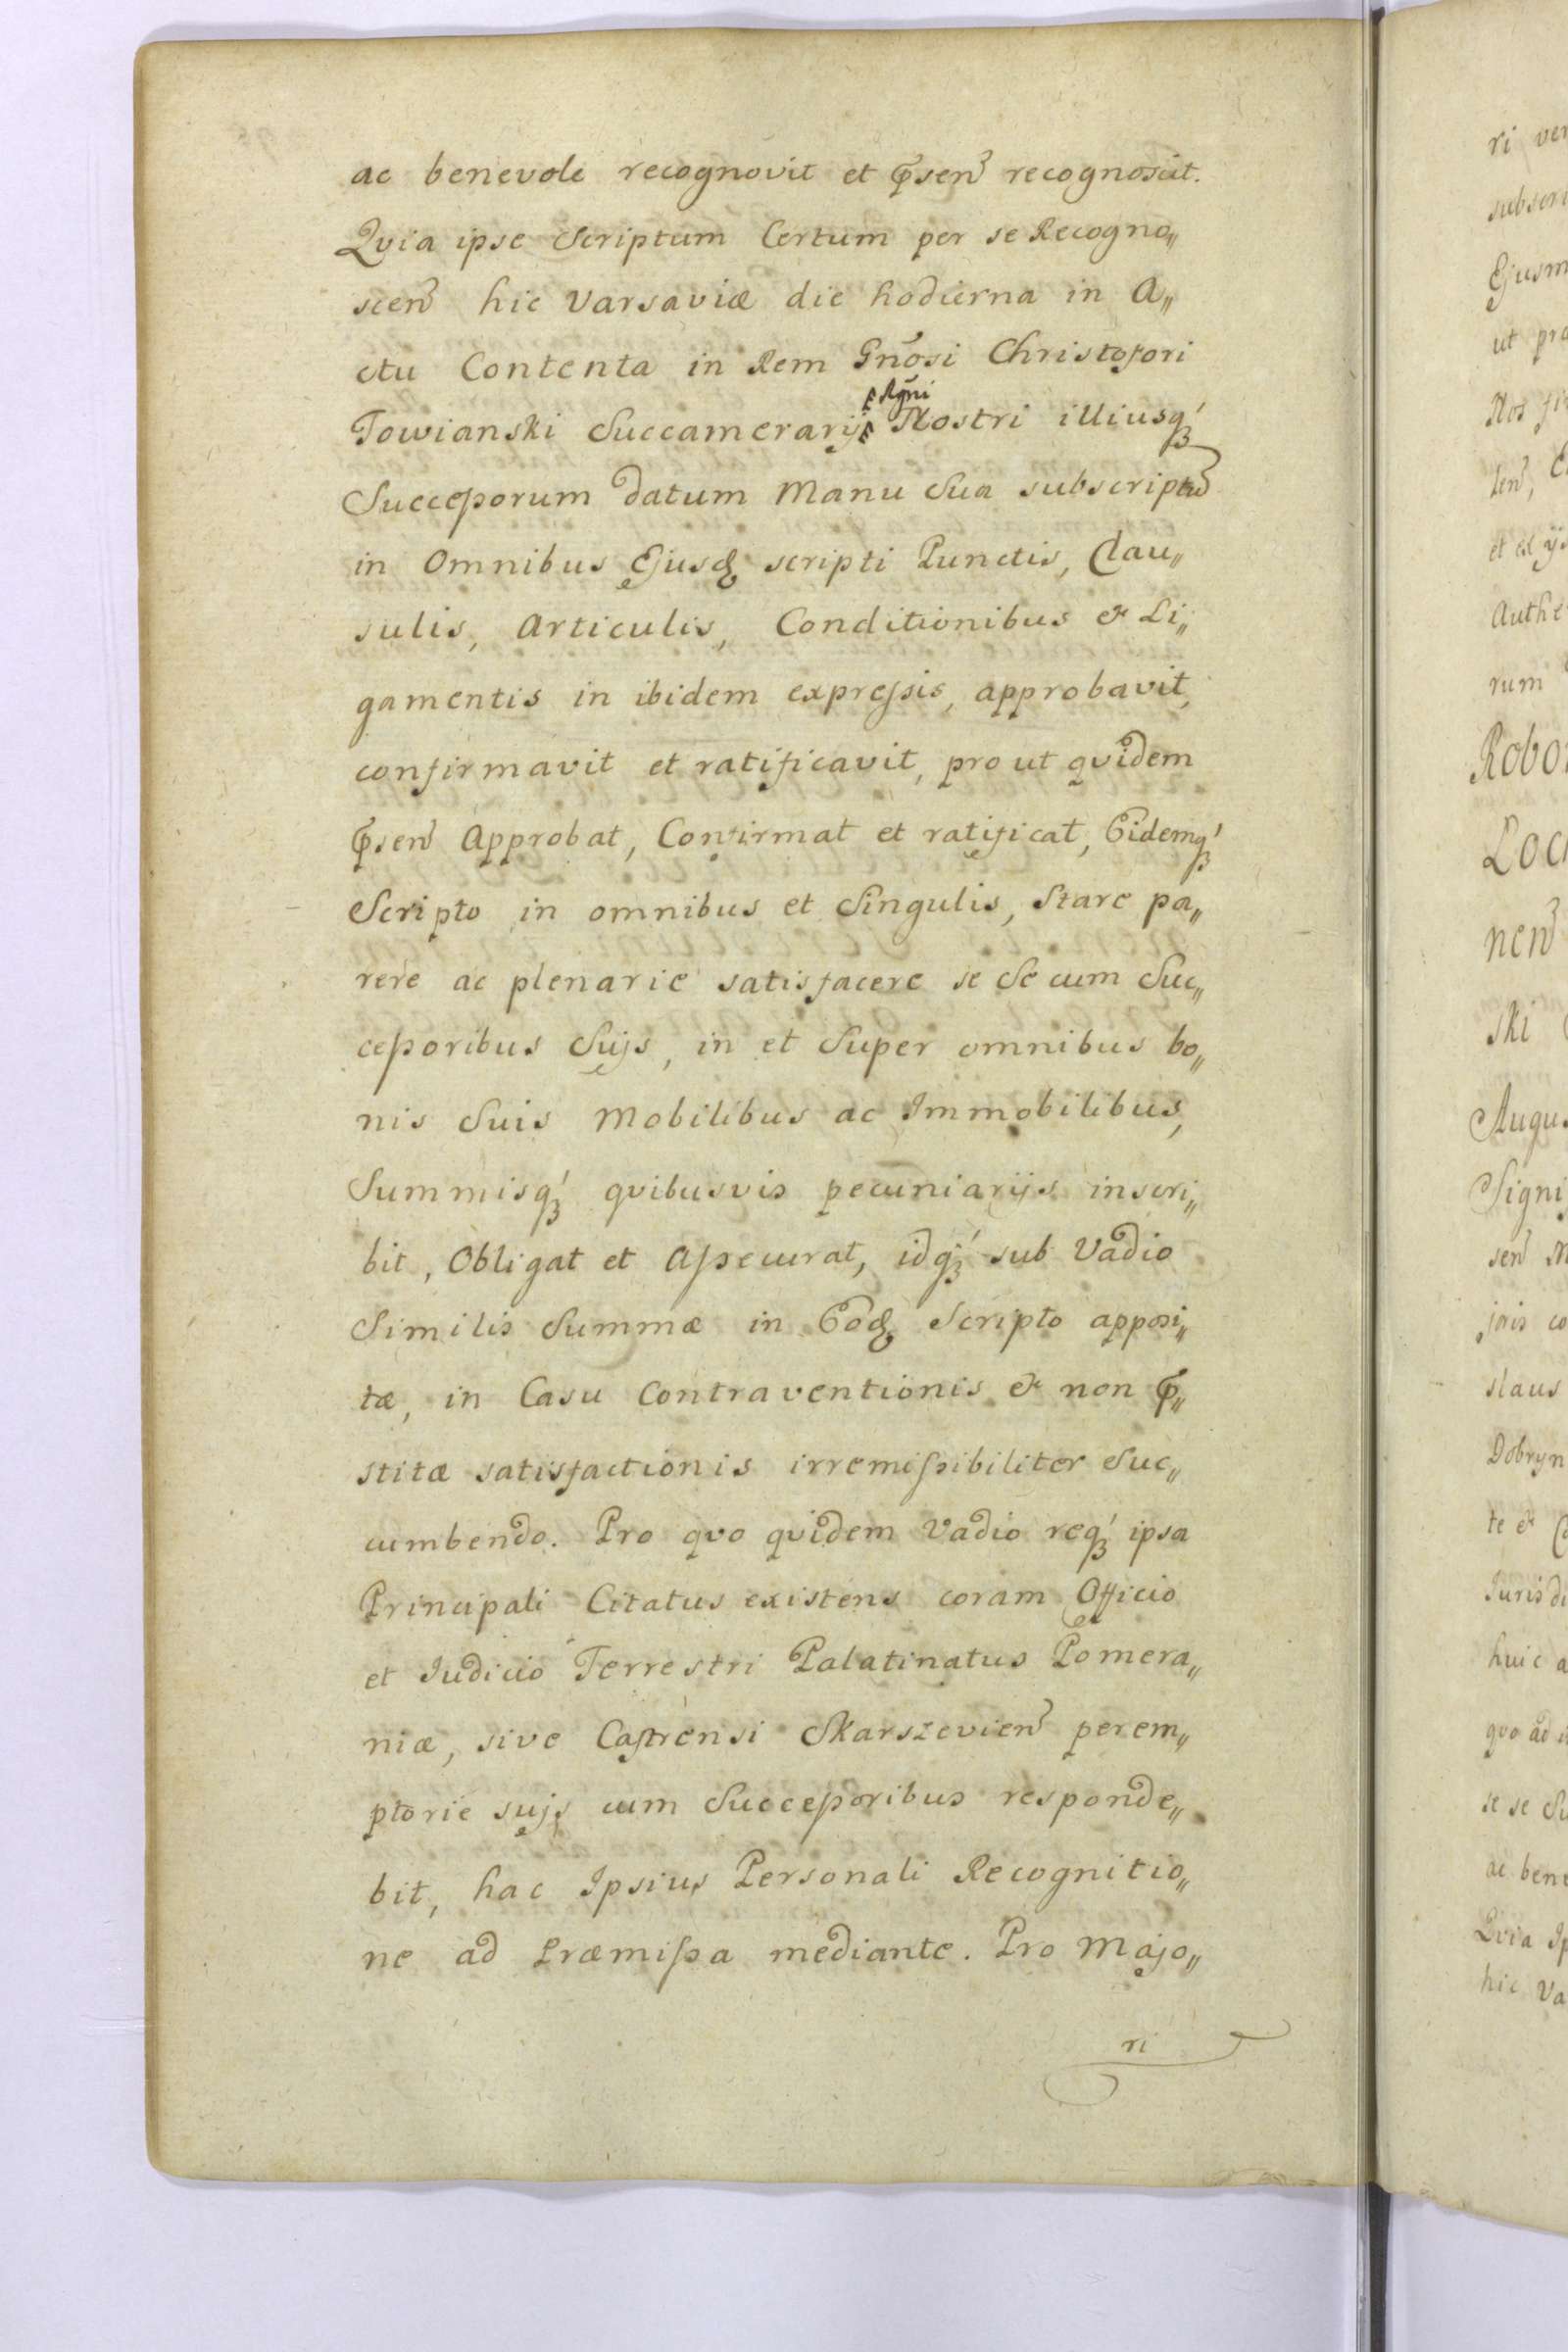 ac benevole recognovit et p̄sen̄ recognoscit.
Qvia ipse Scriptum Certum per se Recogno„
scen̄ hic Varsaviæ die hodierna in A„
ctu Contenta in Rem Gn̄osi Christofori
Towianski Succamerarij Rg̃ni Nostri illiusq́ꝫ
Succeßorum datum Manu Sua subscriptū
in Omnibus Ejusḍ scripti Punctis, Clau„
sulis, Articulis, Conditionibus & Li„
gamentis in ibidem expreßis, approbavit,
confirmavit et ratificavit, pro ut qvidem
p̄sen̄ Approbat, Confirmat et ratificat, Eidemq́ꝫ
Scripto in omnibus et Singulis, Stare pa„
rere ac plenarie satisfacere se Se cum Suc„
ceßoribus Suijs, in et Super omnibus bo„
nis Suis Mobilibus ac Immobilibus,
Summisq́ꝫ qvibusvis pecuniarijs inscri„
bit, Obligat et Aßecurat, idq́ꝫ sub Vadio
Similis Summæ in Eoḍ Scripto apposi„
tæ, in Casu Contraventionis & non p̄„
stitæ satisfactionis irremißibiliter Suc„
cumbendo. Pro qvo qvidem Vadio req́ꝫ ipsa
Principali Citatus existens coram Officio
et Iudicio Terrestri Palatinatus Pomera„
niæ, sive Castrensi Skarszevien̄ perem„
ptorie sujs cum Succeßoribus responde„
bit, hac Ipsius Personali Recognitio„
ne ad Præmißa mediante. Pro Majo„
ri
ri
Ejusm
ut
Nos
len̄,
rum
nen̄
ski
Augus
Signi
sen̄
joris
slaus
Dobryn
te &
huic
qvo ad
se se
Qvia
hic Va